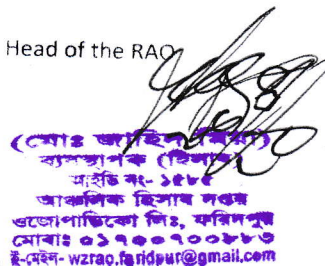 Head of the RAO
(মোঃ জাহিদ
ব্যবস্থাপক (হিসাব)
আইডি নং- ১৫৮৫
আঞ্চলিক হিসাব দপ্তর
ওজোপাডিকো লিঃ, ফরিদপুর
মোবাঃ ০১৭০০৭০০৮৮৩
ই-মেইল- wzrao.faridpur@gmail.com